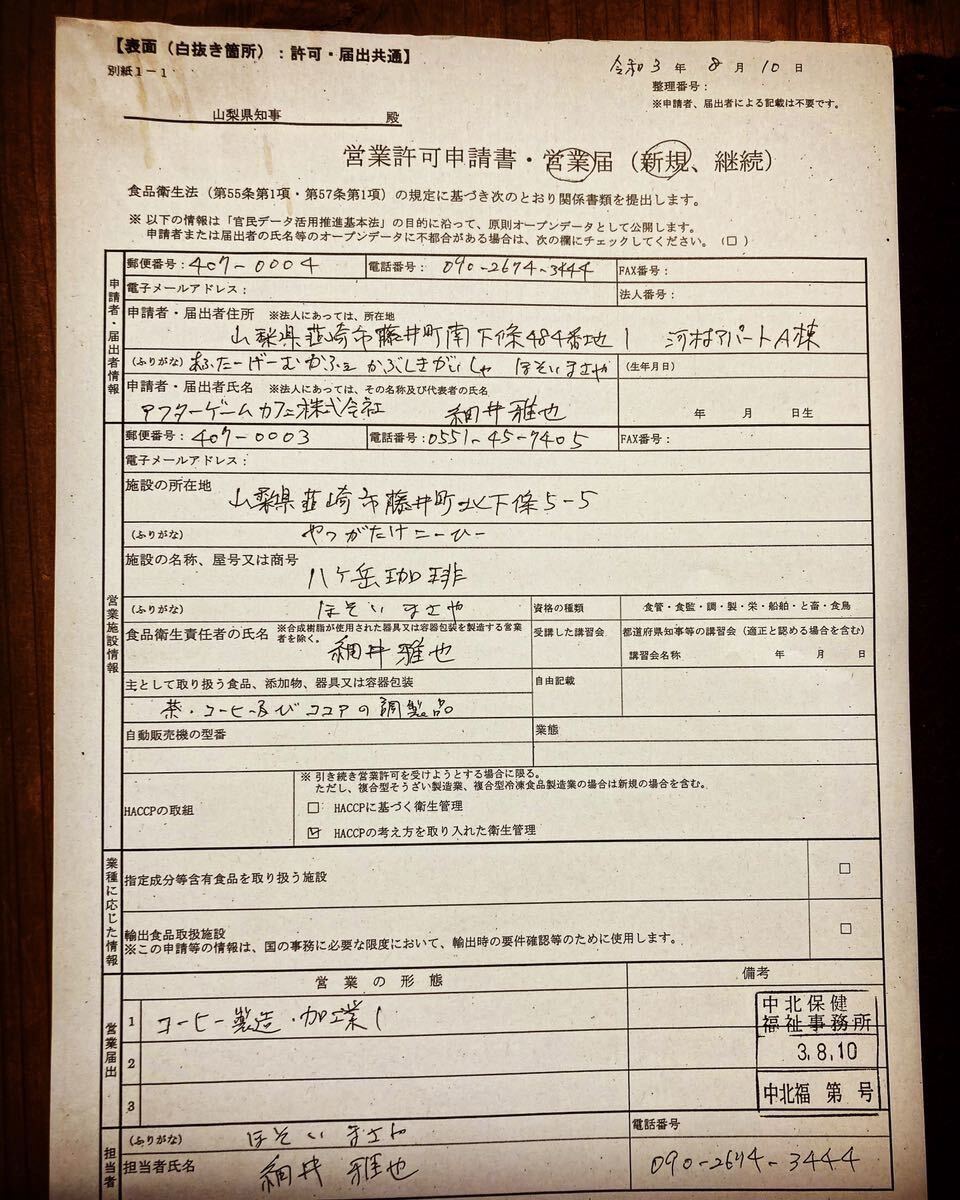 【表面（白抜き箇所）：許可・届出共通】
別紙1－1
令和 3 年 8 月 10 日
整理番号：
※申請者、届出者による記載は不要です。
山梨県知事 殿
営業許可申請書・営業届（新規、継続）
食品衛生法（第55条第1項・第57条第1項）の規定に基づき次のとおり関係書類を提出します。
※ 以下の情報は「官民データ活用推進基本法」の目的に沿って、原則オープンデータとして公開します。
申請者または届出者の氏名等のオープンデータに不都合がある場合は、次の欄にチェックしてください。（□）
申請者・届出者情報
郵便番号：407-0004 電話番号：090-2674-3444 FAX番号：
電子メールアドレス： 法人番号：
申請者・届出者住所 ※法人にあっては、所在地
山梨県韮崎市藤井町南下條484番地1 河村アパートA棟
（ふりがな）あふたーげーむかふぇ かぶしきがいしゃ ほそい まさや （生年月日）
申請者・届出者氏名 ※法人にあっては、その名称及び代表者の氏名
アフターゲームカフェ株式会社 細井雅也 年 月 日生
営業施設情報
郵便番号：407-0003 電話番号：0551-45-7405 FAX番号：
電子メールアドレス：
施設の所在地
山梨県韮崎市藤井町北下條5-5
（ふりがな） やつがたけこーひー
施設の名称、屋号又は商号
八ケ岳珈琲
（ふりがな） ほそい まさや 資格の種類 食管・食監・調・製・栄・船舶・と畜・食鳥
食品衛生責任者の氏名 ※合成樹脂が使用された器具又は容器包装を製造する営業者を除く。 受講した講習会 都道府県知事等の講習会（適正と認める場合を含む）
細井 雅也 講習会名称 年 月 日
主として取り扱う食品、添加物、器具又は容器包装 自由記載
茶・コーヒー及びココアの調製品
自動販売機の型番 業態
HACCPの取組
※ 引き続き営業許可を受けようとする場合に限る。
ただし、複合型そうざい製造業、複合型冷凍食品製造業の場合は新規の場合を含む。
□ HACCPに基づく衛生管理
☑ HACCPの考え方を取り入れた衛生管理
業種に応じた情報
指定成分等含有食品を取り扱う施設 □
輸出食品取扱施設 □
※この申請等の情報は、国の事務に必要な限度において、輸出時の要件確認等のために使用します。
営業届出
営業の形態 備考
1 コーヒー製造・加工業
2
3
中北保健
福祉事務所
3.8.10
中北福 第 号
担当者
（ふりがな） ほそい まさや 電話番号
担当者氏名 細井 雅也 090-2674-3444